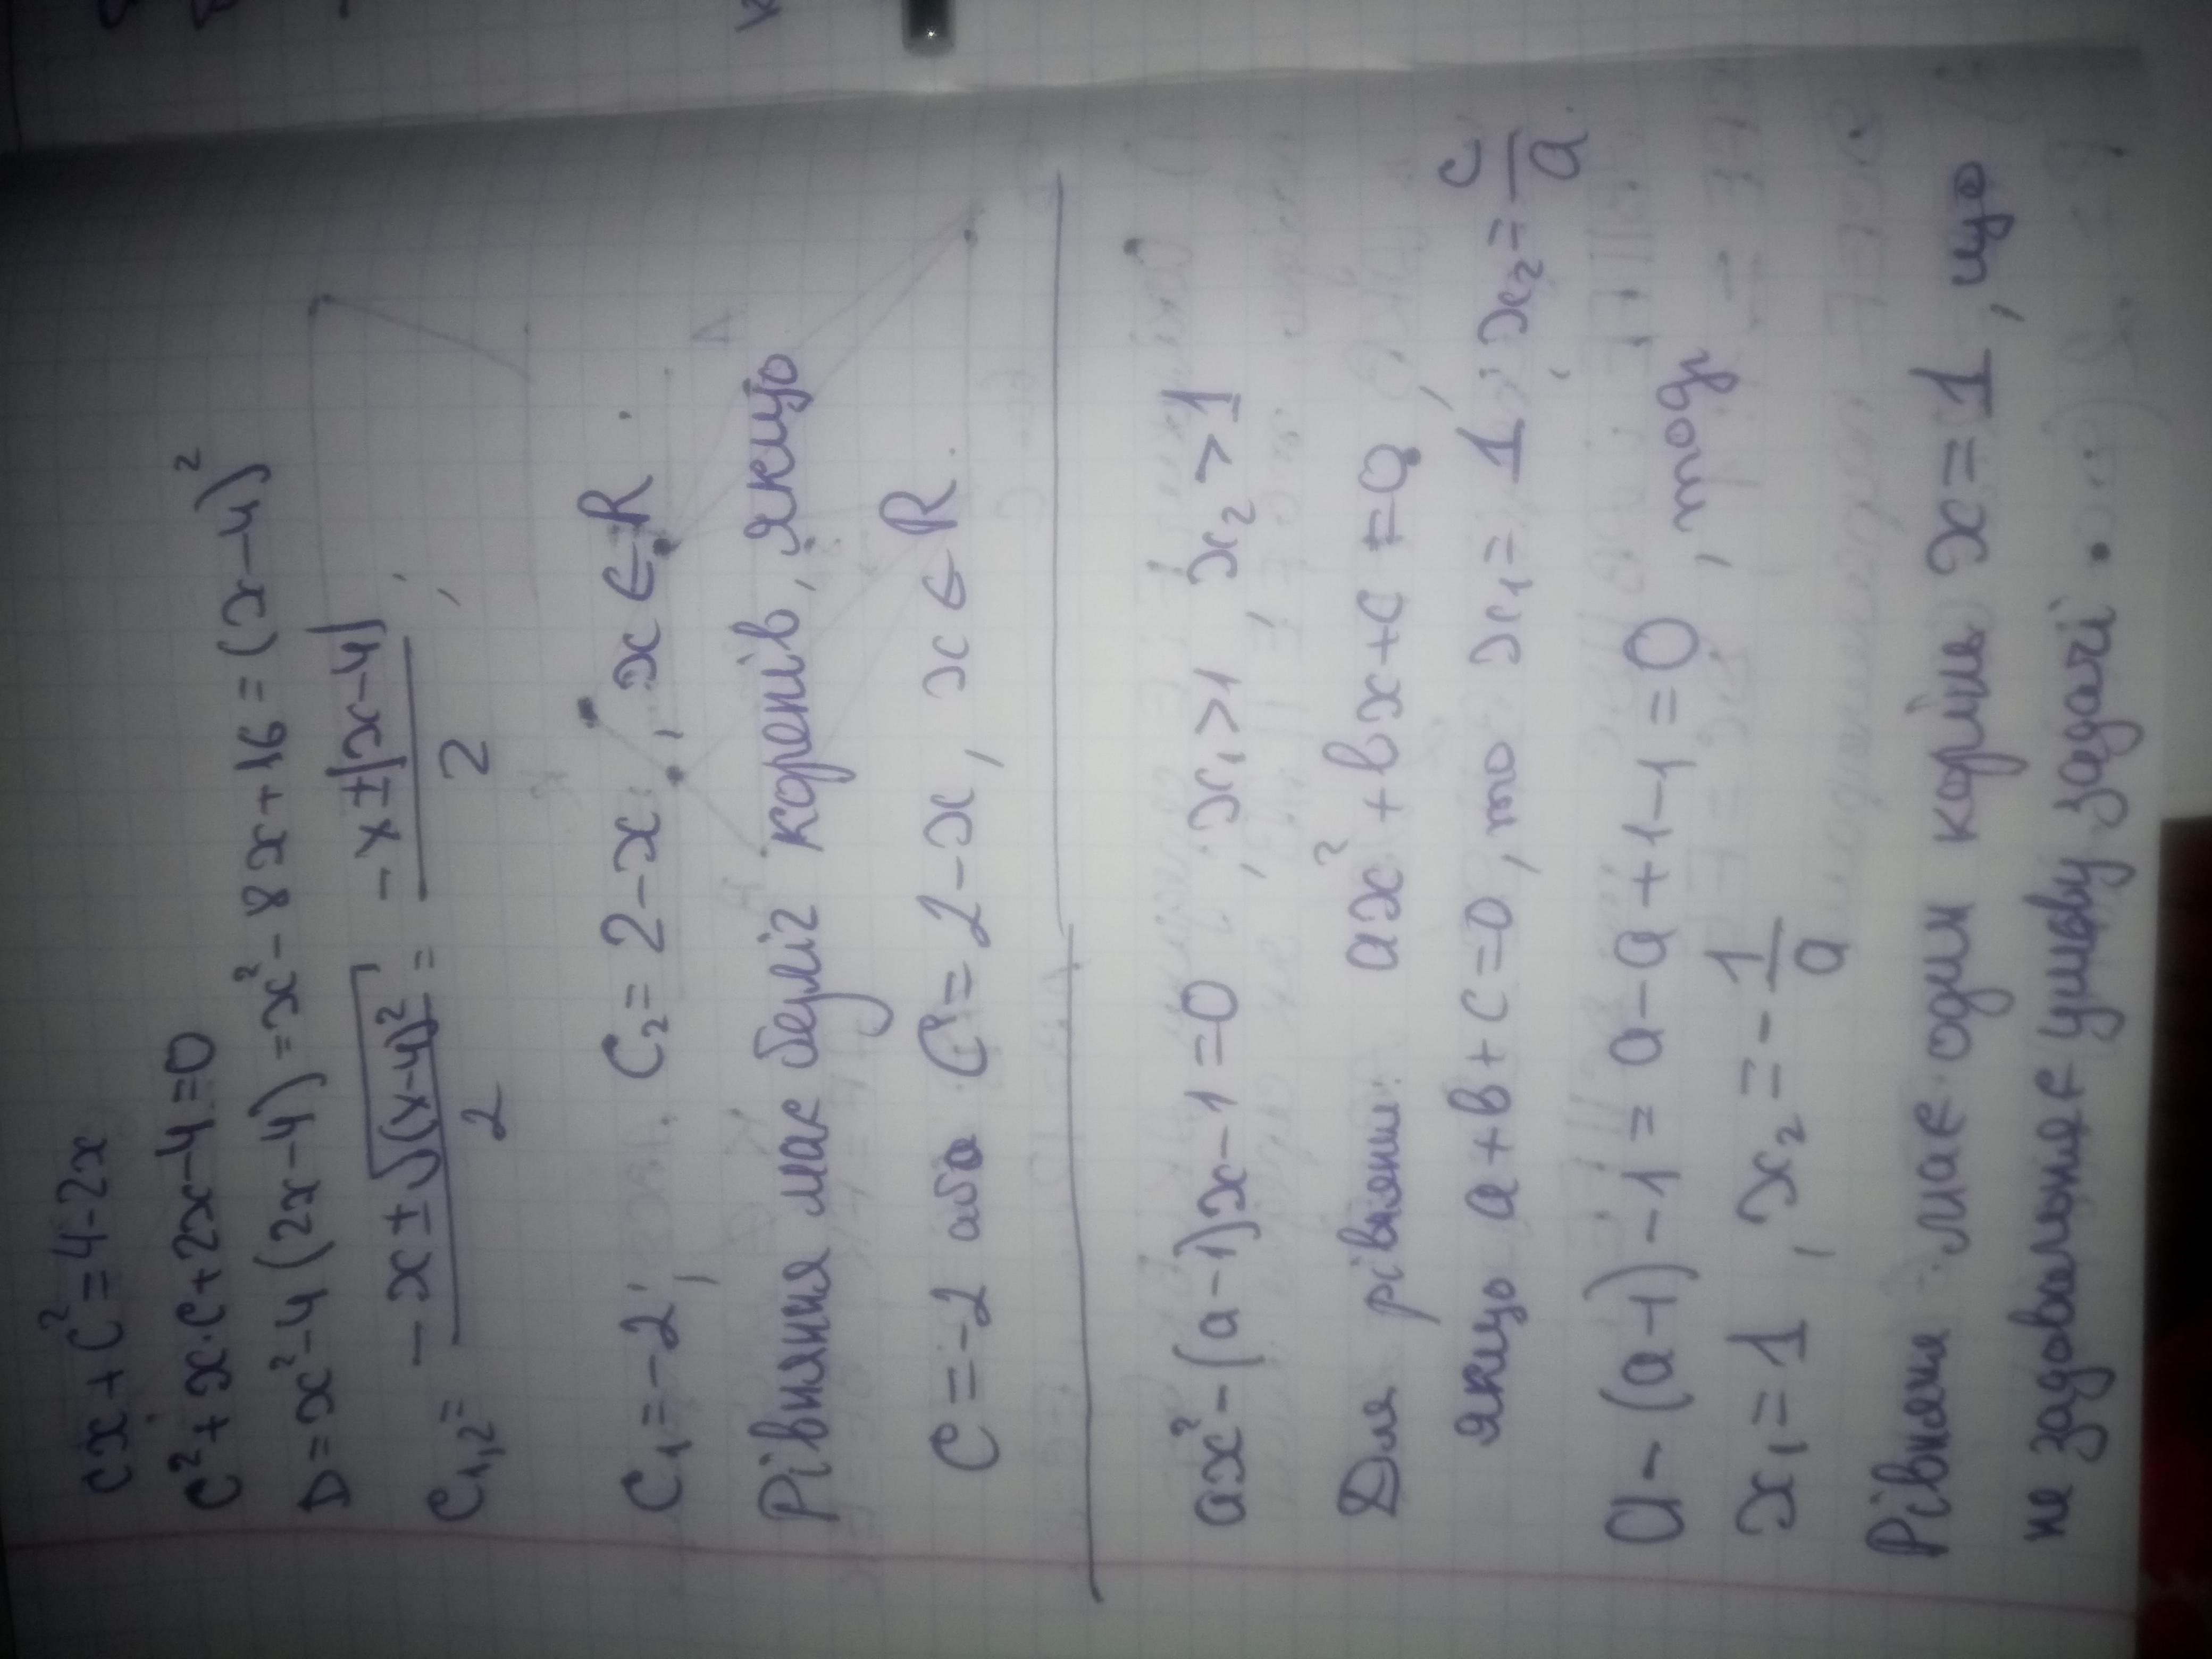 cx + c² = 4 - 2x
c² + x·c + 2x - 4 = 0
D = x² - 4(2x - 4) = x² - 8x + 16 = (x - 4)²
c₁,₂ = (-x ± √(x-4)²)/2 = (-x ± |x-4|)/2 ;
C₁ = -2 ; C₂ = 2 - x , x ∈ R .
Рівняння має безліч коренів, якщо
C = -2 або C = 2 - x , x ∈ R .
ax² - (a - 1)x - 1 = 0 , x₁ > 1 , x₂ > 1
Для рівняння ax² + bx + c = 0 ,
якщо a + b + c = 0 , то x₁ = 1 ; x₂ = c/a .
a - (a - 1) - 1 = a - a + 1 - 1 = 0 , тоді
x₁ = 1 , x₂ = - 1/a
Рівняння має один корінь x = 1 , що
не задовольняє умову задачі .